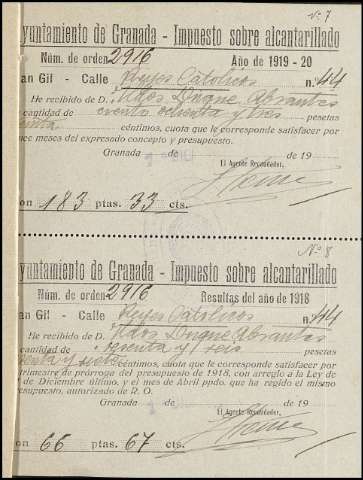 Nº 7
yuntamiento de Granada - Impuesto sobre alcantarillado
Núm. de orden 2916 Año de 1919 - 20
an Gil - Calle Reyes Católicos n.º 44
He recibido de D. Hdos Duque Abrantes
cantidad de ciento ochenta y tres pesetas
céntimos, cuota que le corresponde satisfacer por
ce meses del expresado concepto y presupuesto.
Granada de de 19
El Agente Recaudador,
on 183 ptas. 33 cts.
Nº 8
yuntamiento de Granada - Impuesto sobre alcantarillado
Núm. de orden 2916 Resultas del año de 1918
an Gil - Calle Reyes Católicos n.º 44
He recibido de D. Hdos Duque Abrantes
cantidad de sesenta y seis pesetas
enta y siete céntimos, cuota que le corresponde satisfacer por
trimestre de prórroga del presupuesto de 1918, con arreglo a la Ley de
de Diciembre último, y el mes de Abril ppdo. que ha regido el mismo
puesto, autorizado de R. O.
Granada de de 19
El Agente Recaudador,
on 66 ptas. 67 cts.